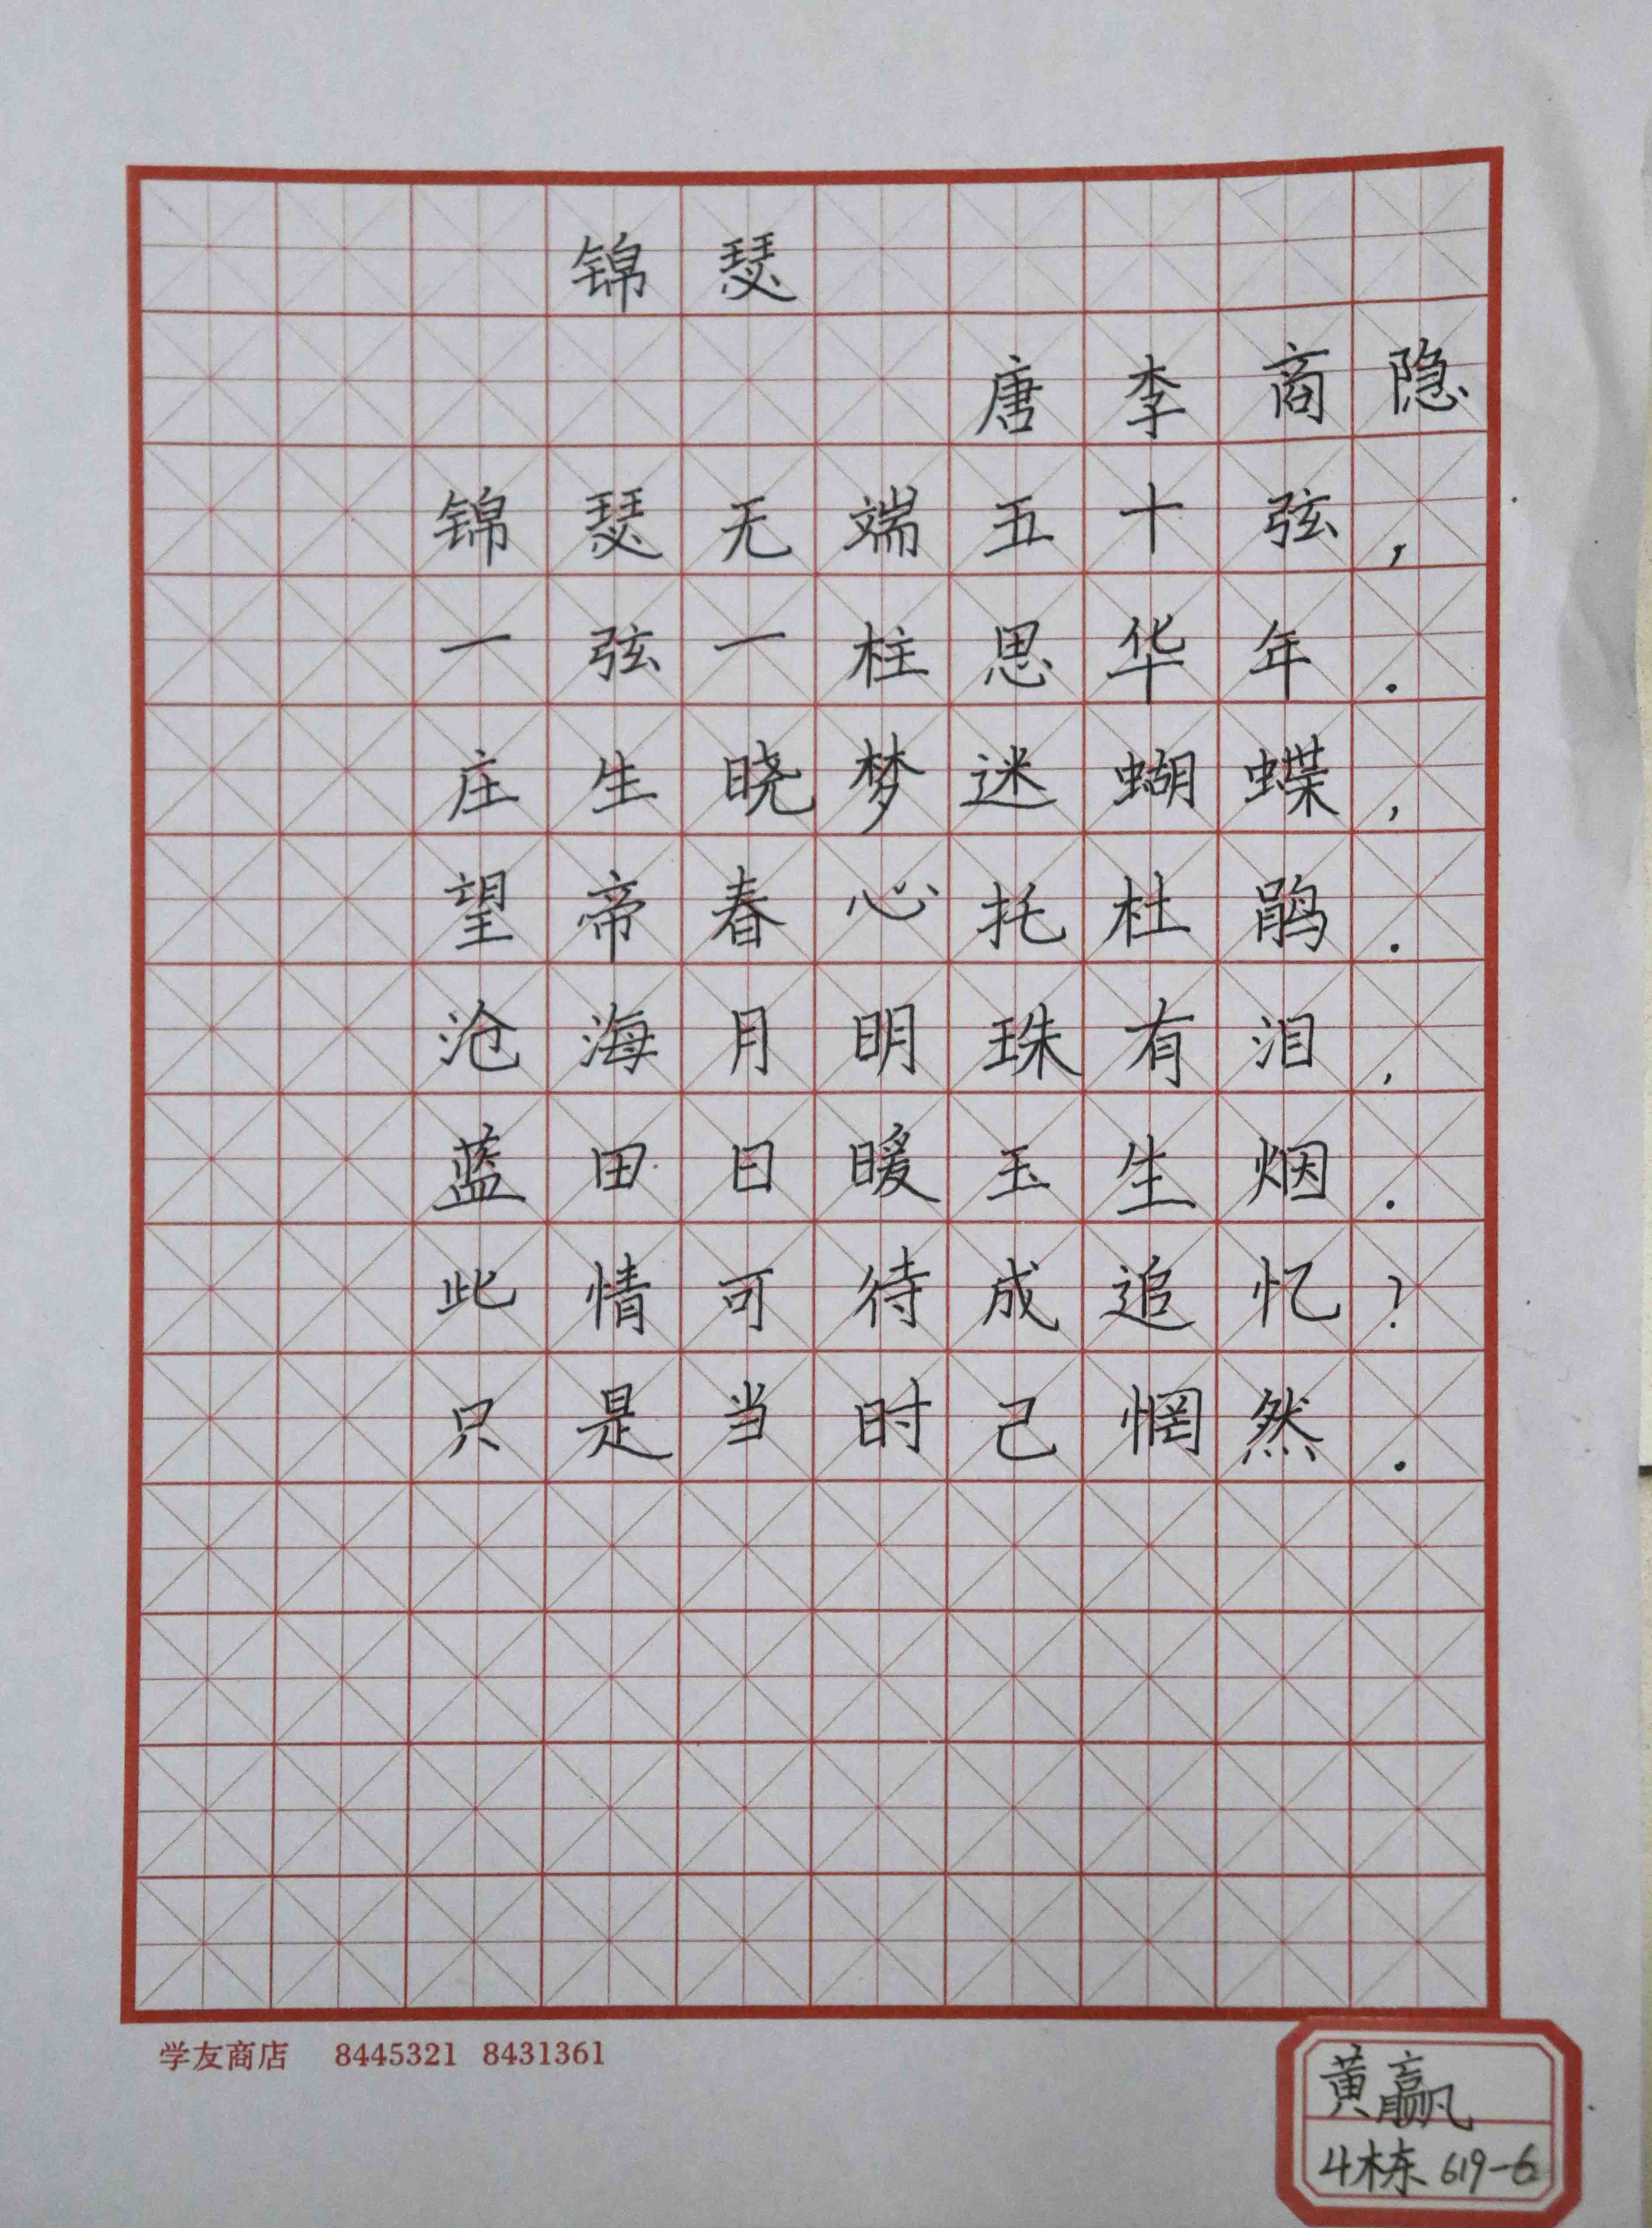 锦瑟
唐李商隐
锦瑟无端五十弦,
一弦一柱思华年.
庄生晓梦迷蝴蝶,
望帝春心托杜鹃.
沧海月明珠有泪,
蓝田日暖玉生烟.
此情可待成追忆?
只是当时己惘然.
学友商店 8445321 8431361
黄赢
4栋 619-6